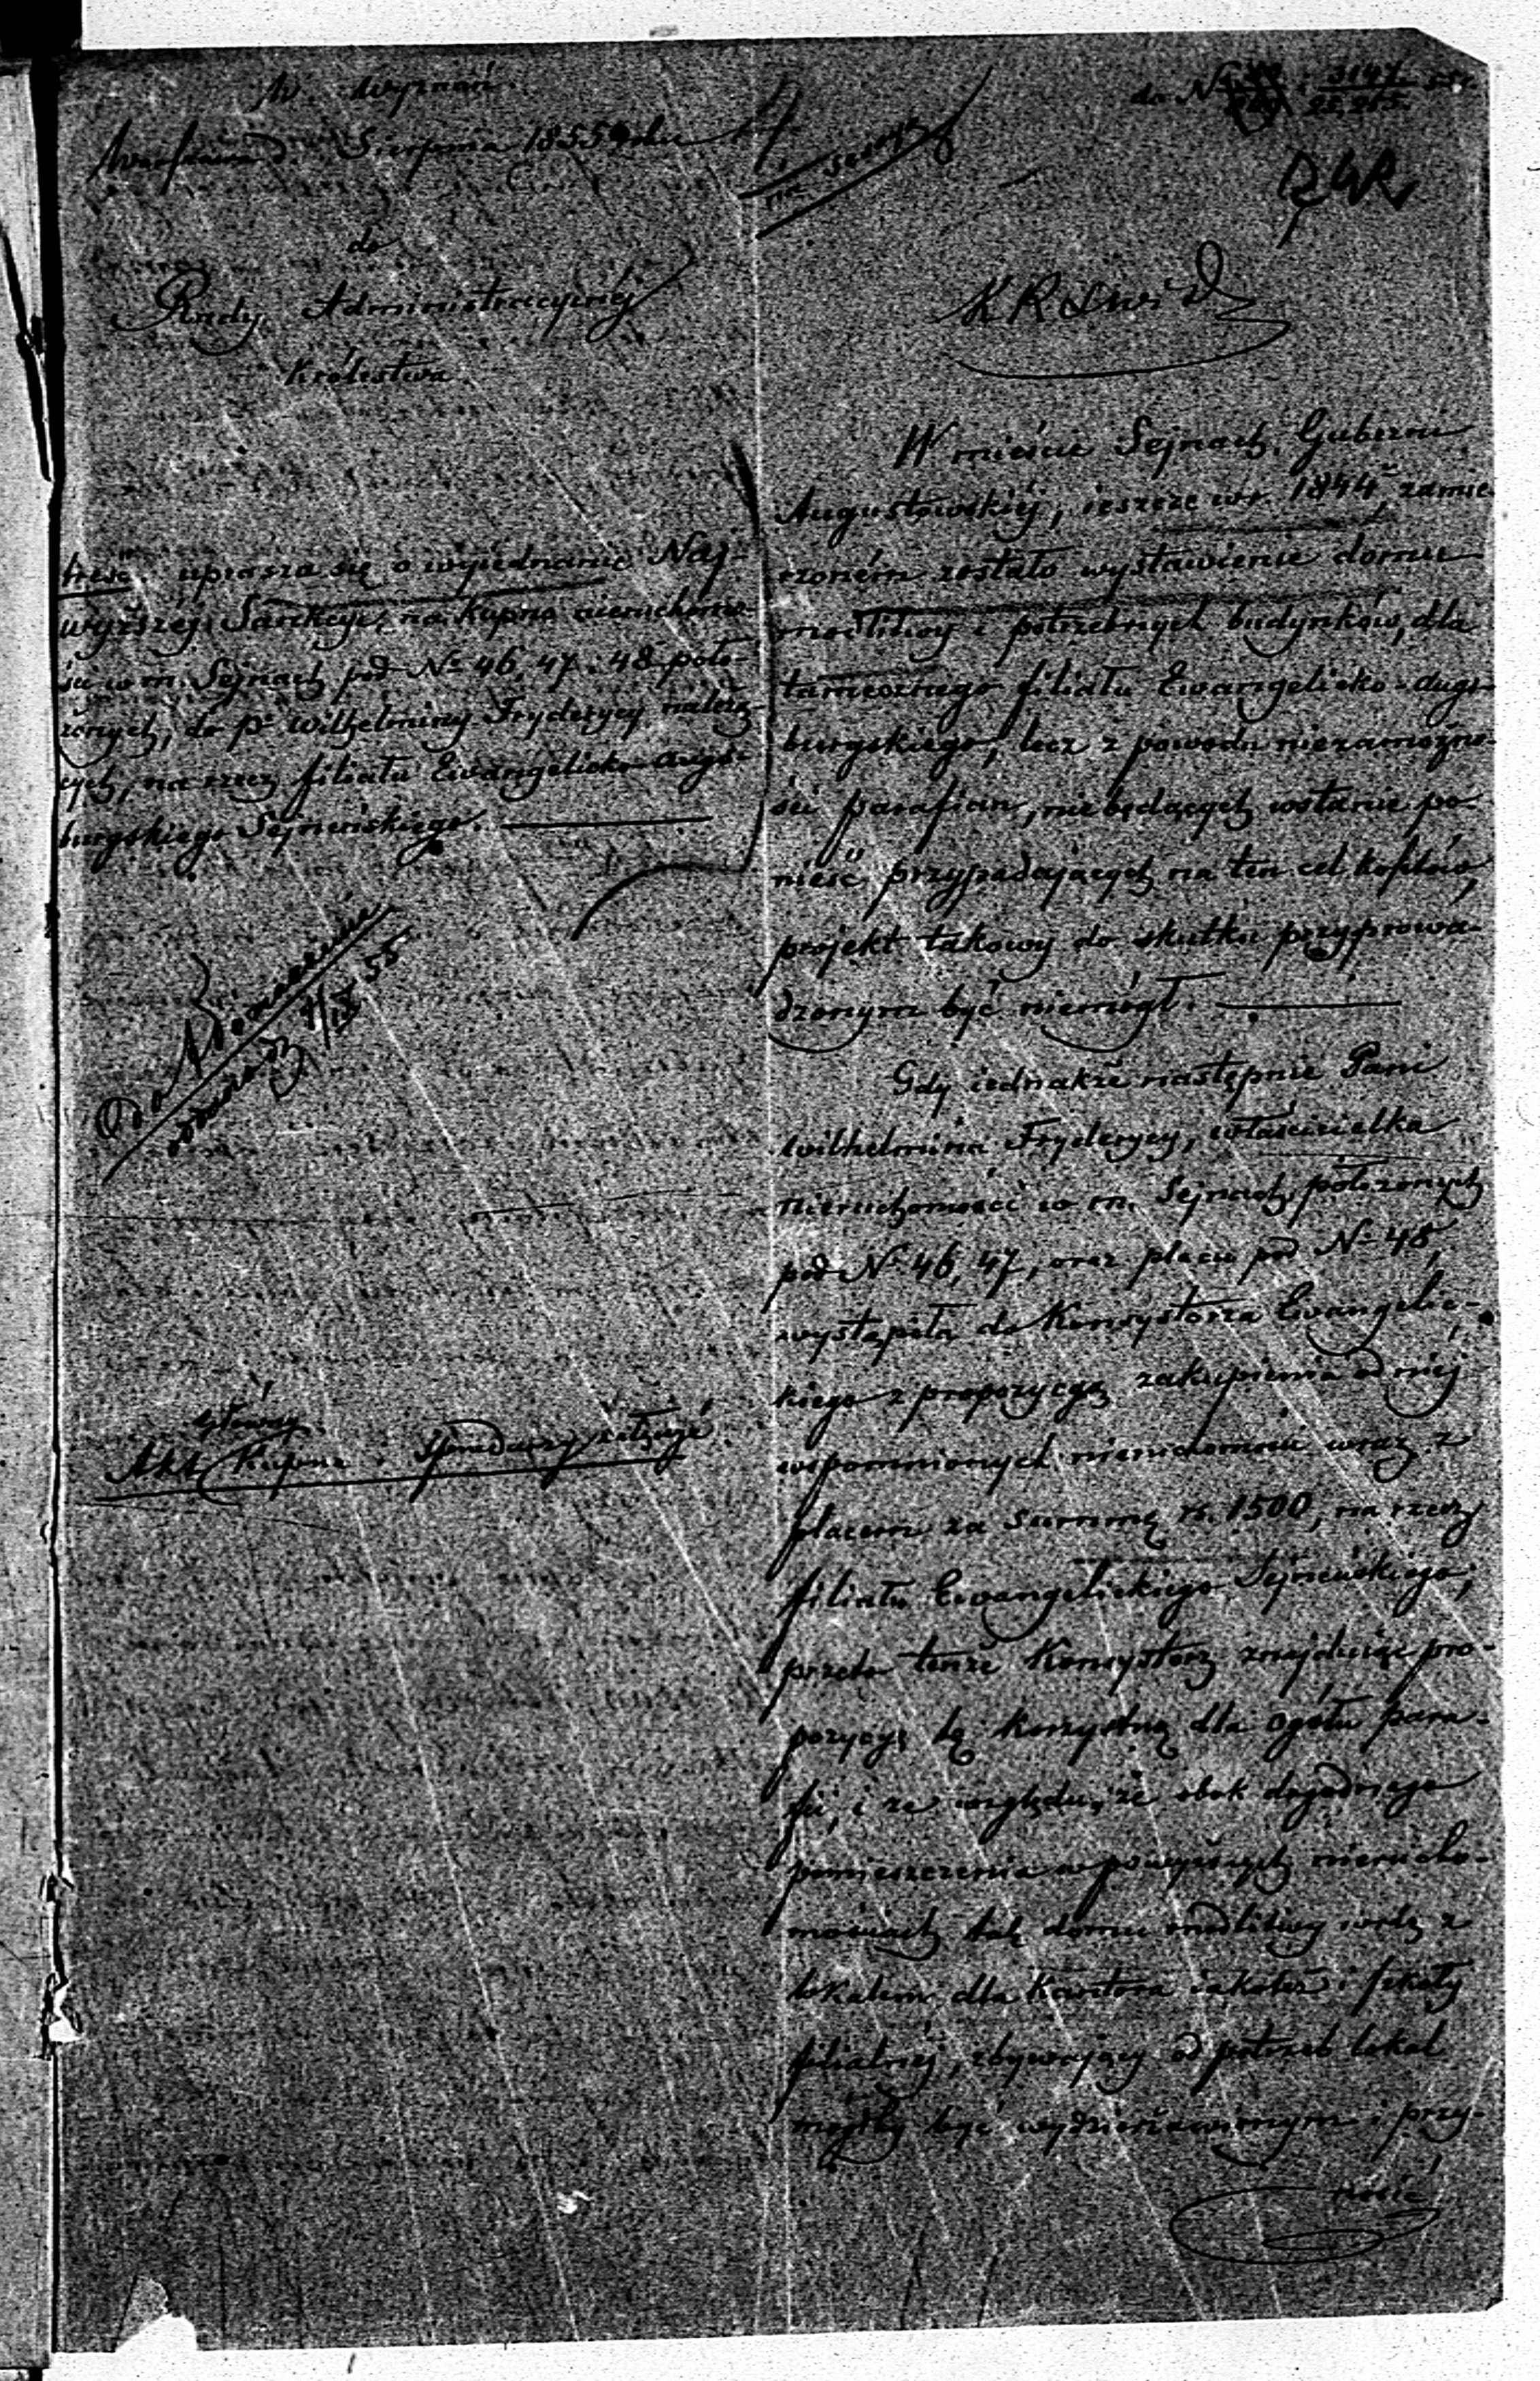 W. Wyznań
Warszawa d. Sierpnia 1855 roku
do
Rady Administracyjnéj
Królestwa
treść: uprasza się o wyjednanie Naj-
wyższéj Sankcyi na kupno nieruchomo-
ści w m. Sejnach pod No 46, 47 i 48 poło-
żonych, do pi Wilhelminy Fryderycy należą-
cych, na rzecz filiału Ewangelicko-Augs-
burgskiego Sejneńskiego.
55
główny
Akt Kupna i Sprzedaży załączyć
do N 3147
KRSWiD
W mieście Sejnach, Gubernii
Augustowskiéj, ieszcze w r. 1844, zamie-
rzoném zostało wystawienie domu
modlitwy i potrzebnych budynków, dla
tamecznego filiału Ewangelicko-Augs-
burgskiego, lecz z powodu niezamożno-
ści parafian, niebędących wstanie po-
nieść przypadających na ten cel kosztów,
projekt takowy do skutku przyprowa-
dzonym być niemógł.
Gdy iednakże następnie Pani
Wilhelmina Fryderycy, właścicielka
nieruchomości w m. Sejnach położonych
pod No 46, 47, oraz placu pod No 48,
wystąpiła do Konsystorza Ewangelic-
kiego z propozycyą zakupienia od niéj
wspomnionych nieruchomości wraz z
placem za summę rs. 1500, na rzecz
filiału Ewangelickiego Sejneńskiego;
przeto tenże Konsystorz znajdując pro-
pozycyę tę korzystną dla ogółu para-
fii, i ze względu, że obok dogodnego
pomieszczenia w powyższych nierucho-
mościach tak domu modlitwy wraz z
lokalem dla Kantora iakoteż i szkoły
filialnéj, zbywający od potrzeb lokal
mógłby być wydzierżawionym i przy-
nosić